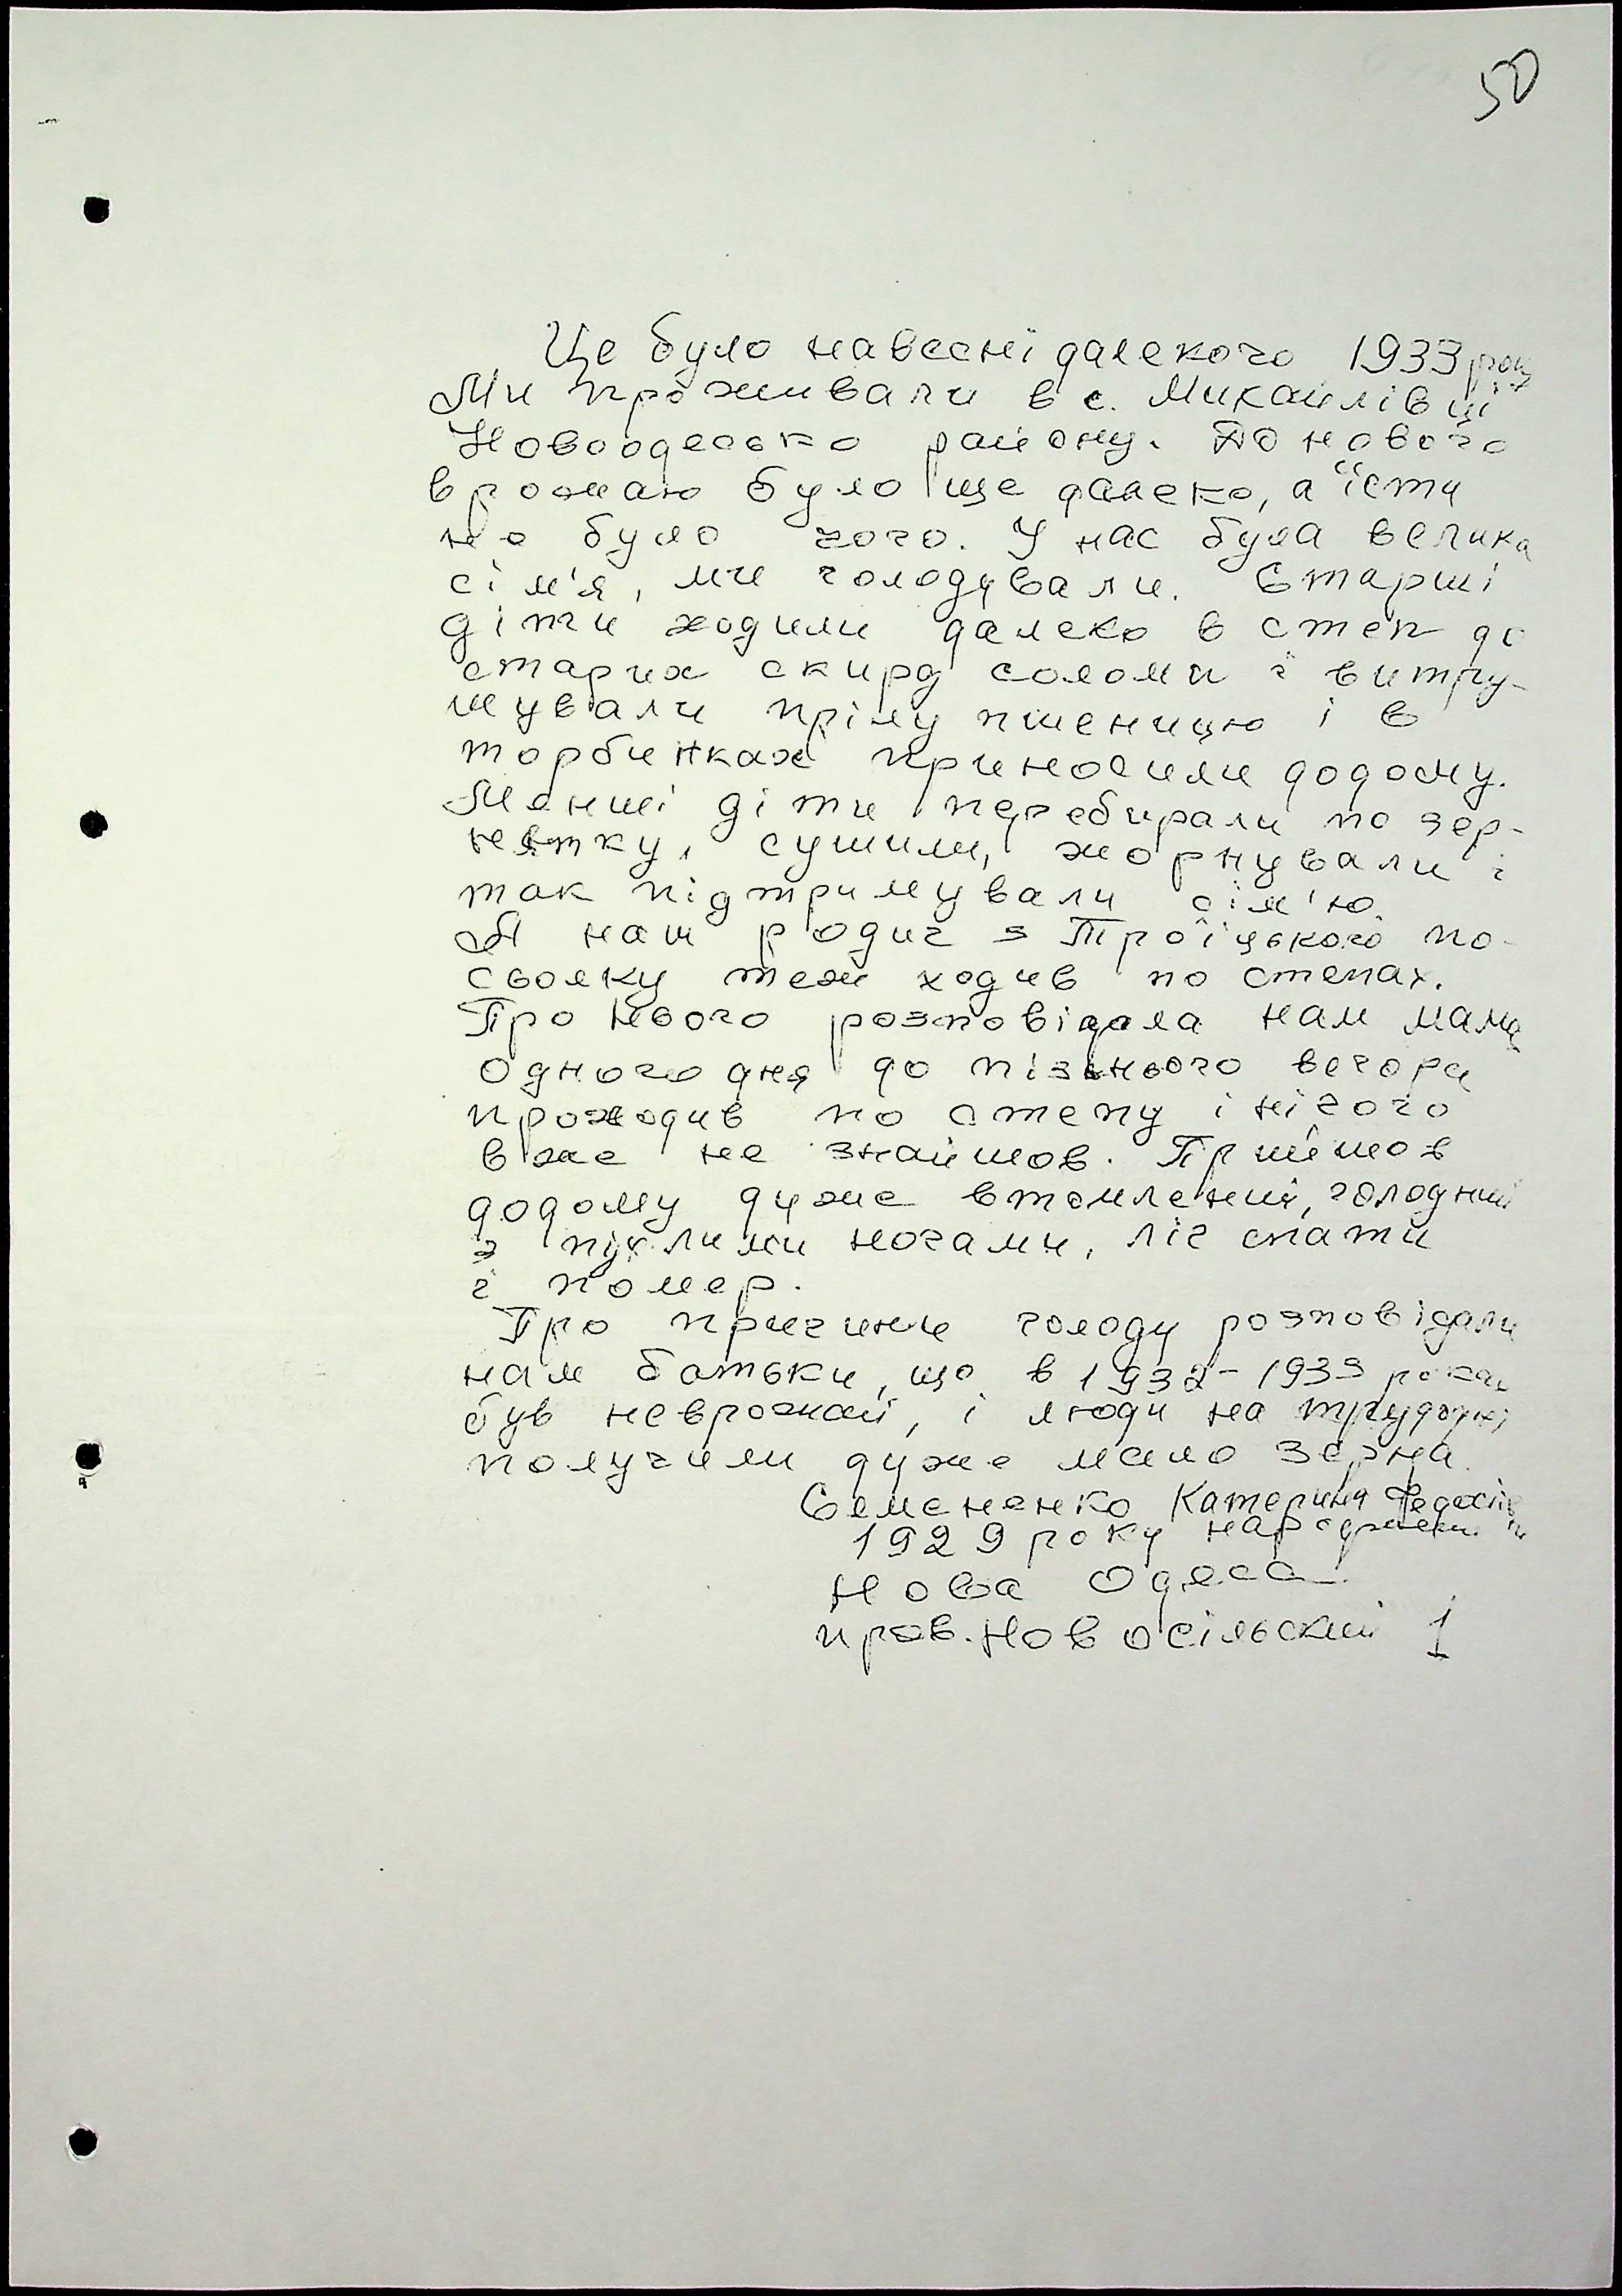 50
Це було навесні далекого 1933 року
Ми проживали в с. Михайлівці
Новоодесько району. До нового
врожаю було ще далеко, а їсти
не було чого. У нас була велика
сім'я, ми голодували. Старші
діти ходили далеко в степ до
старих скирд соломи і витру-
шували прілу пшеницю і в
торбинках приносили додому.
Менші діти перебирали по зер-
нятку, сушили, жорнували і
так підтримували сім'ю.
А наш родич з Троїцького по-
свояку теж ходив по степах.
Про нього розповідала нам мама
одного дня до пізнього вечора
проходив по степу і нічого
вже не знайшов. Прийшов
додому дуже втомлений, голодний
з пухлими ногами, ліг спати
і помер.
Про причини голоду розповідали
нам батьки, що в 1932-1933 роках
був неврожай, і люди на трудодні
получили дуже мало зерна.
Семененко Катерина
1929 року народження
Нова Одеса
пров. Новосільський 1